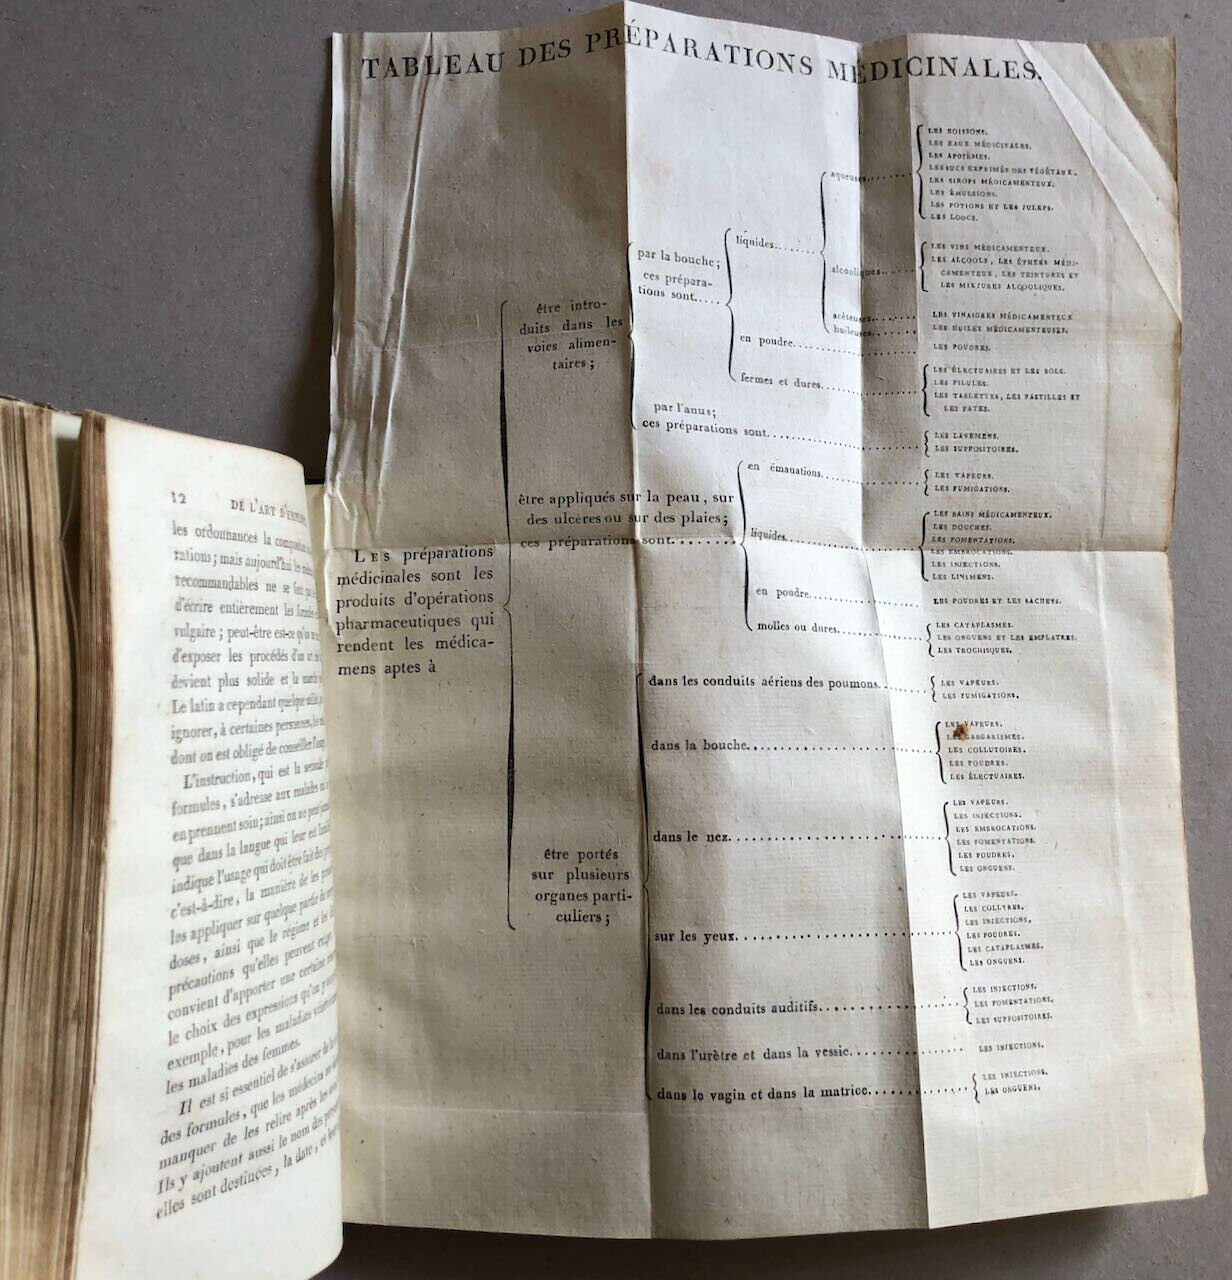 TABLEAU DES PRÉPARATIONS MÉDICINALES.
LES préparations
médicinales sont les
produits d'opérations
pharmaceutiques qui
rendent les médica-
mens aptes à
être intro-
duits dans les
voies alimen-
taires;
par la bouche;
ces prépara-
tions sont.....
liquides.......
aqueuses.......
LES BOISSONS.
LES EAUX MÉDICINALES.
LES APOZÈMES.
LES SUCS EXPRIMÉS DES VÉGÉTAUX.
LES SIROPS MÉDICAMENTEUX.
LES ÉMULSIONS.
LES POTIONS ET LES JULEPS.
LES LOOCS.
alcooliques.......
LES VINS MÉDICAMENTEUX.
LES ALCOOLS, LES ÉTHERS MÉDI-
CAMENTEUX, LES TEINTURES ET
LES MIXTURES ALCOOLIQUES.
acéteuses.......
LES VINAIGRES MÉDICAMENTEUX
huileuses.......
LES HUILES MÉDICAMENTEUSES.
en poudre.......
LES POUDRES.
fermes et dures.......
LES ÉLECTUAIRES ET LES BOLS.
LES PILULES.
LES TABLETTES, LES PASTILLES ET
LES PATES.
par l'anus;
ces préparations sont.......
LES LAVEMENS.
LES SUPPOSITOIRES.
être appliqués sur la peau, sur
des ulcères ou sur des plaies;
ces préparations sont.......
en émanations.......
LES VAPEURS.
LES FUMIGATIONS.
liquides.......
LES BAINS MÉDICAMENTEUX.
LES DOUCHES.
LES FOMENTATIONS.
LES EMBROCATIONS.
LES INJECTIONS.
LES LINIMENS.
en poudre.......
LES POUDRES ET LES SACHETS.
molles ou dures.......
LES CATAPLASMES.
LES ONGUENS ET LES EMPLATRES.
LES TROCHISQUES.
être portés
sur plusieurs
organes parti-
culiers;
dans les conduits aériens des poumons.......
LES VAPEURS.
LES FUMIGATIONS.
dans la bouche.......
LES VAPEURS.
LES GARGARISMES.
LES COLLUTOIRES.
LES POUDRES.
LES ÉLECTUAIRES.
dans le nez.......
LES VAPEURS.
LES INJECTIONS.
LES EMBROCATIONS.
LES FOMENTATIONS.
LES POUDRES.
LES ONGUENS.
sur les yeux.......
LES VAPEURS.
LES COLLYRES.
LES INJECTIONS.
LES POUDRES.
LES CATAPLASMES.
LES ONGUENS.
dans les conduits auditifs.......
LES INJECTIONS.
LES FOMENTATIONS.
LES SUPPOSITOIRES.
dans l'urètre et dans la vessie.......
LES INJECTIONS.
dans le vagin et dans la matrice.......
LES INJECTIONS.
LES ONGUENS.
12 DE L'ART D'
les ordonnances la
rations; mais aujourd'hui les
recommandables ne se font
d'écrire entièrement les
vulgaire; peut-être est-ce
d'exposer les procédés d'un art
devient plus solide et la
Le latin a cependant quelque
ignorer, à certaines personnes,
dont on est obligé de conseiller
L'instruction, qui est la seconde
formules, s'adresse aux malades
en prennent soin; ainsi on ne peut
que dans la langue qui leur est
indique l'usage qui doit être fait des
c'est-à-dire, la manière de les
les appliquer sur quelque partie du
doses, ainsi que le régime et les
précautions qu'elles peuvent
convient d'apporter une certaine
le choix des expressions qu'on y
exemple, pour les maladies
les maladies des femmes.
Il est si essentiel de s'assurer de la
des formules, que les médecins ne
manquer de les relire après les
Ils y ajoutent aussi le nom des
elles sont destinées, la date, et